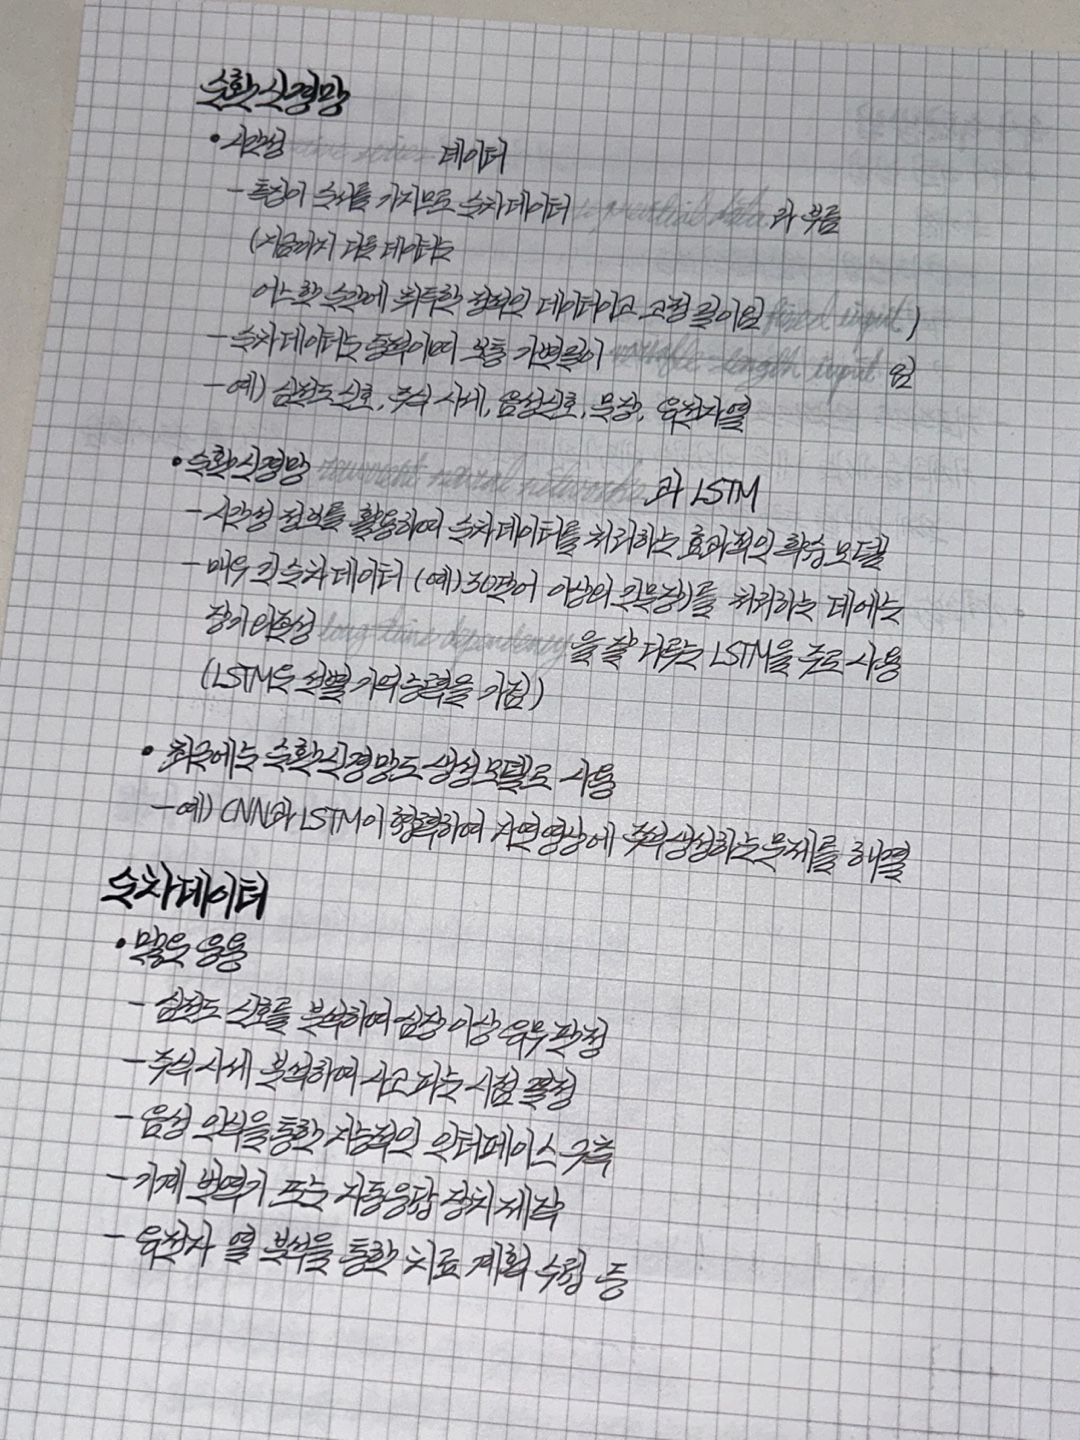 순환 신경망
• 시간성 time series 데이터
- 특징이 순서를 가지므로 순차 데이터 sequential data라 부름
(지금까지 다룬 데이터는
어느 한 순간에 취득한 정적인 데이터이고 고정 길이임 fixed input)
- 순차 데이터는 동적이며 보통 가변 길이 variable-length input임
- 예) 심전도 신호, 주식 시세, 음성 신호, 문장, 유전자 열
• 순환 신경망 recurrent neural networks과 LSTM
- 시간성 정보를 활용하여 순차 데이터를 처리하는 효과적인 학습 모델
- 매우 긴 순차 데이터 (예) 30단어 이상의 긴 문장)를 처리하는 데에는
장기 의존성 long-time dependency을 잘 다루는 LSTM을 주로 사용
(LSTM은 선별 기억 능력을 가짐)
• 최근에는 순환 신경망도 생성 모델로 사용
- 예) CNN과 LSTM이 협력하여 자연 영상에 주석 생성하는 문제를 해결
순차 데이터
• 많은 응용
- 심전도 신호를 분석하여 심장 이상 유무 판정
- 주식 시세 분석하여 사고 파는 시점 결정
- 음성 인식을 통한 지능적인 인터페이스 구축
- 기계 번역기 또는 자동 응답 장치 제작
- 유전자 열 분석을 통한 치료 계획 수립 등